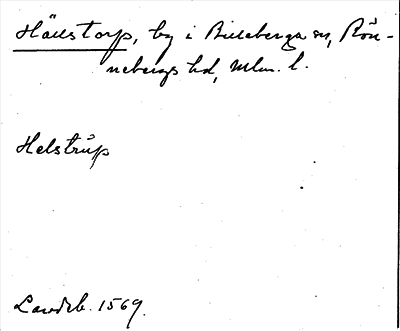 Hällstorp, by i Billeberga sn, Rön-
nebergs hd, Mlm. l.
Helstrúp
Landeb. 1569.